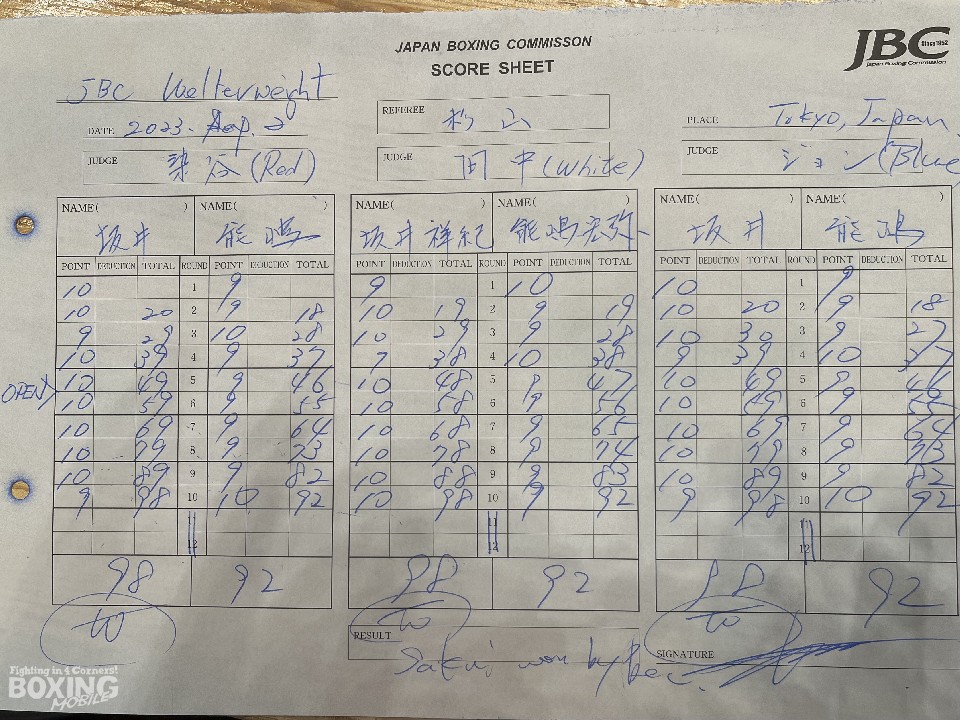 JAPAN BOXING COMMISSON
SCORE SHEET
JBC
Since 1952
Japan Boxing Commission
JBC Welterweight
DATE 2023. Sep. 2
REFEREE 杉山
PLACE Tokyo, Japan.
JUDGE 染谷 (Red)
JUDGE 田中 (White)
JUDGE ジョン (Blue)
NAME( ) NAME( ) NAME( ) NAME( ) NAME( ) NAME( )
坂井 能嶋 坂井祥紀 能嶋宏弥 坂井 能嶋
POINT DEDUCTION TOTAL ROUND POINT DEDUCTION TOTAL POINT DEDUCTION TOTAL ROUND POINT DEDUCTION TOTAL POINT DEDUCTION TOTAL ROUND POINT DEDUCTION TOTAL
10 1 9 9 1 10 10 1 9
10 20 2 9 18 10 19 2 9 19 10 20 2 9 18
9 29 3 10 28 10 29 3 9 28 10 30 3 9 27
10 39 4 9 37 9 38 4 10 38 9 39 4 10 37
OPEN
10 49 5 9 46 10 48 5 9 47 10 49 5 9 46
10 59 6 9 55 10 58 6 9 56 10 59 6 9 55
10 69 7 9 64 10 68 7 9 65 10 69 7 9 64
10 79 8 9 73 10 78 8 9 74 10 79 8 9 73
10 89 9 9 82 10 88 9 9 83 10 89 9 9 82
9 98 10 10 92 10 98 10 9 92 9 98 10 10 92
11 11
12 12 12
98 92 98 92 98 92
to to to
RESULT
Sakai won by Dec.
SIGNATURE
Fighting in 4 Corners!
BOXING
MOBILE